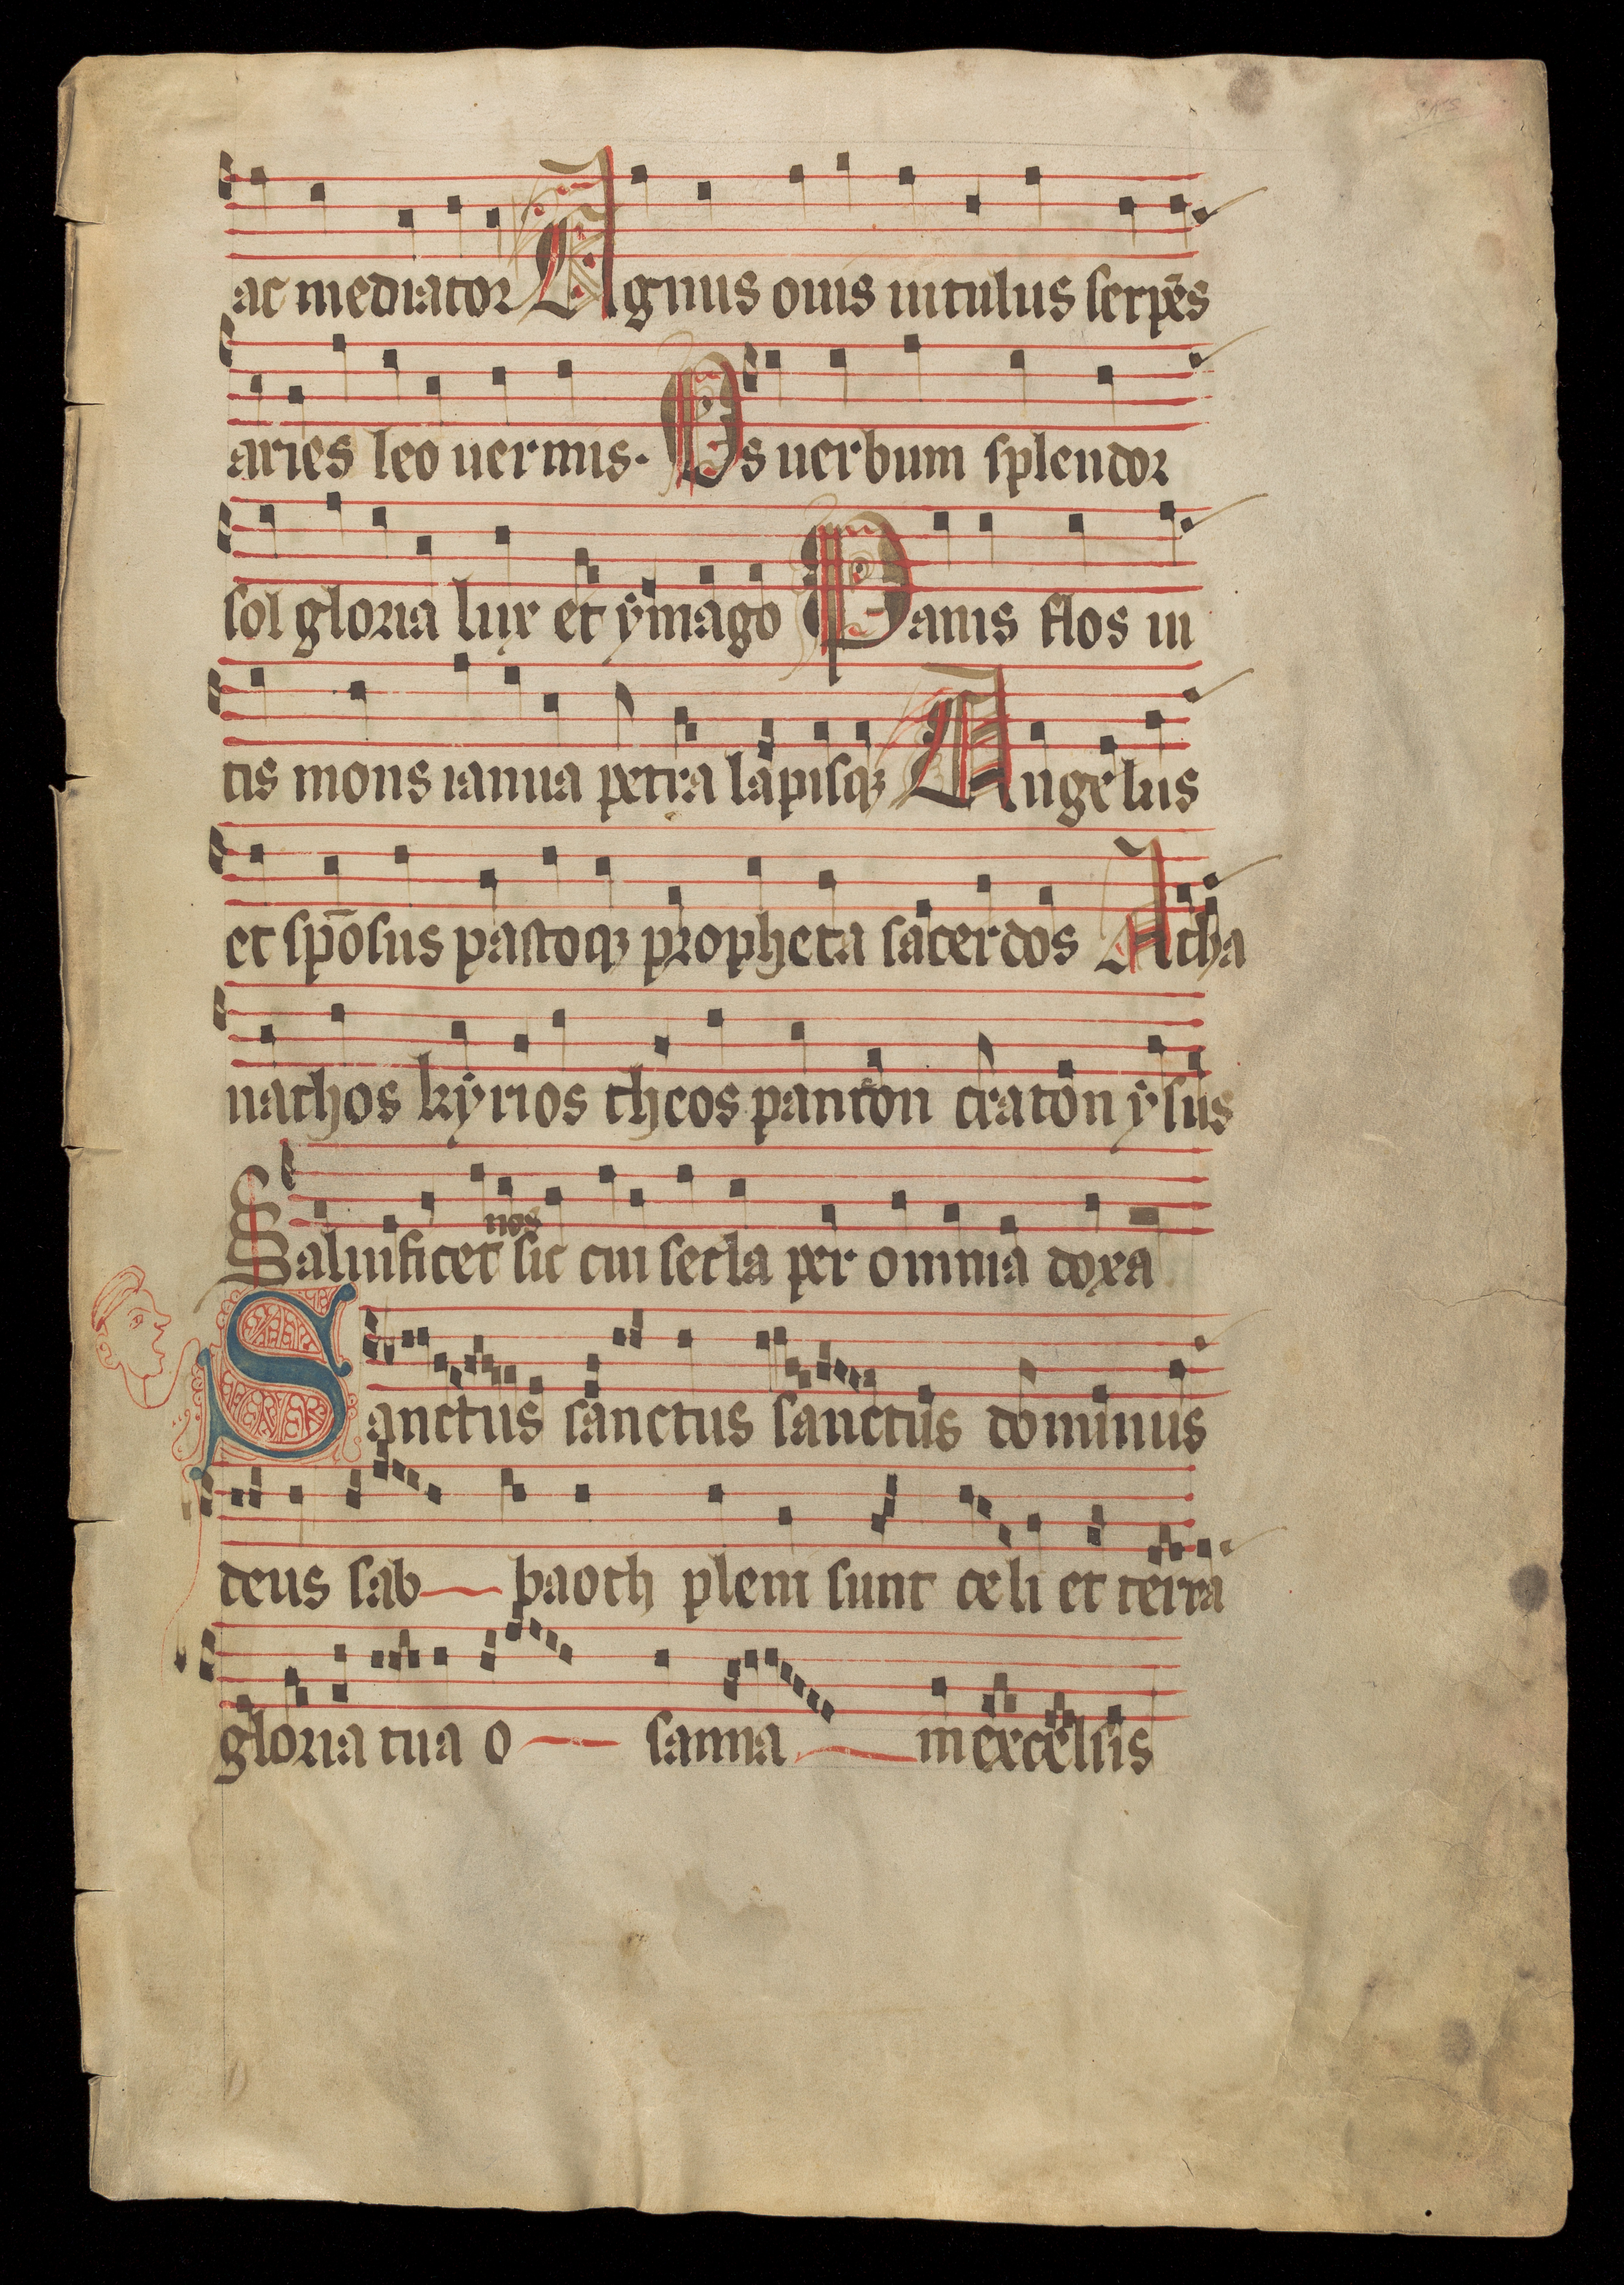 ac mediator Agnus ouis uitulus serpēs
aries leo uermis. Os uerbum splendor
sol gloria lux et ymago Panis flos ui
tis mons ianua petra lapisqꝫ Angelus
et spōsus pastoqꝫ propheta sacerdos Atha
nathos kyrios theos panton craton ysus
nos
Saluificet sic cui secla per omnia doxa
Sanctus sanctus sanctus dominus
deus sab baoth pleni sunt celi et terra
gloria tua o sanna in excelsis